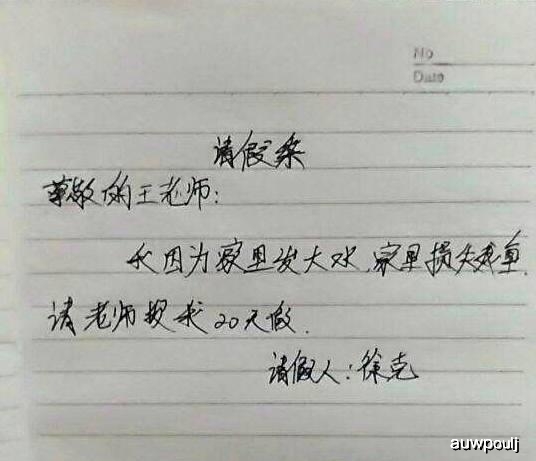 No
Date
请假条
尊敬的王老师:
我因为家里发大水,家里损失惨重,
请老师授我20天假.
请假人:徐克
auwpoulj